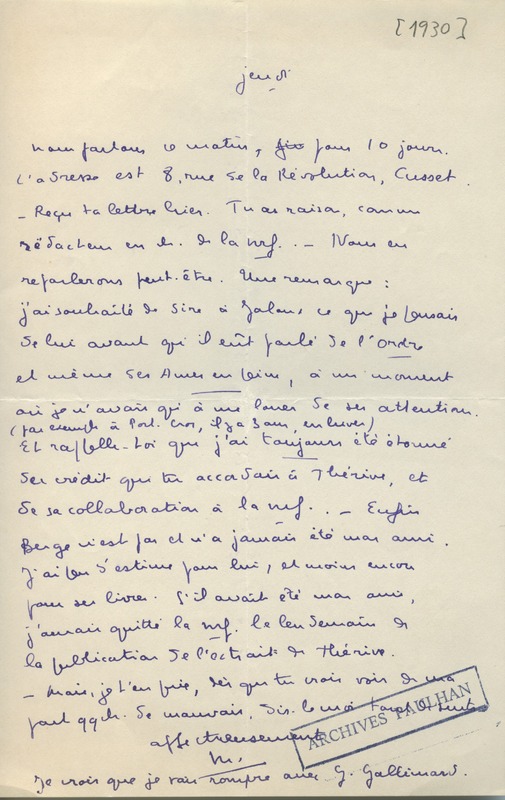 [1930]
jeudi
nous partons ce matin, pour 10 jours.
L'adresse est 8, rue de la Révolution, Cusset.
— Reçu ta lettre hier. Tu as raison, comme
rédacteur en ch. de la nrf. — Nous en
reparlerons peut-être. Une remarque :
j'ai souhaité de dire à ce que je pensais
de lui avant qu'il eût parlé de l'ordre
et même des Ames en peine, à un moment
où je n'avais qu'à me louer de ses attentions.
(par exemple à Port-Cros, il y a 3 ans, en hiver)
Et rappelle-toi que j'ai toujours été étonné
du crédit que tu accordais à Thérive, et
de sa collaboration à la nrf. — Enfin
Berge n'est pas et n'a jamais été mon ami.
J'ai peu d'estime pour lui, et moins encore
pour ses livres. S'il avait été mon ami,
j'aurais quitté la nrf. le lendemain de
la publication de l'extrait de Thérive.
— Mais, je t'en prie, dès que tu crois voir de ma
part qqch. de mauvais, dis-le moi tout de suite
affectueusement
M.
ARCHIVES PAULHAN
Je crois que je vais rompre avec G. Gallimard.